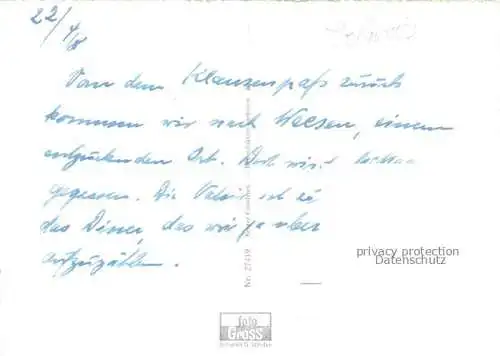 22/
4/8
Von dem Klausenpaß zurück
kommen wir nach Weesen, einem
entzückenden Ort. Dort wird
gegessen. Die ist
das Diner, das wir ja aber
aufzuzählen.
privacy protection
Datenschutz
Nr. 27419
foto
GROSS